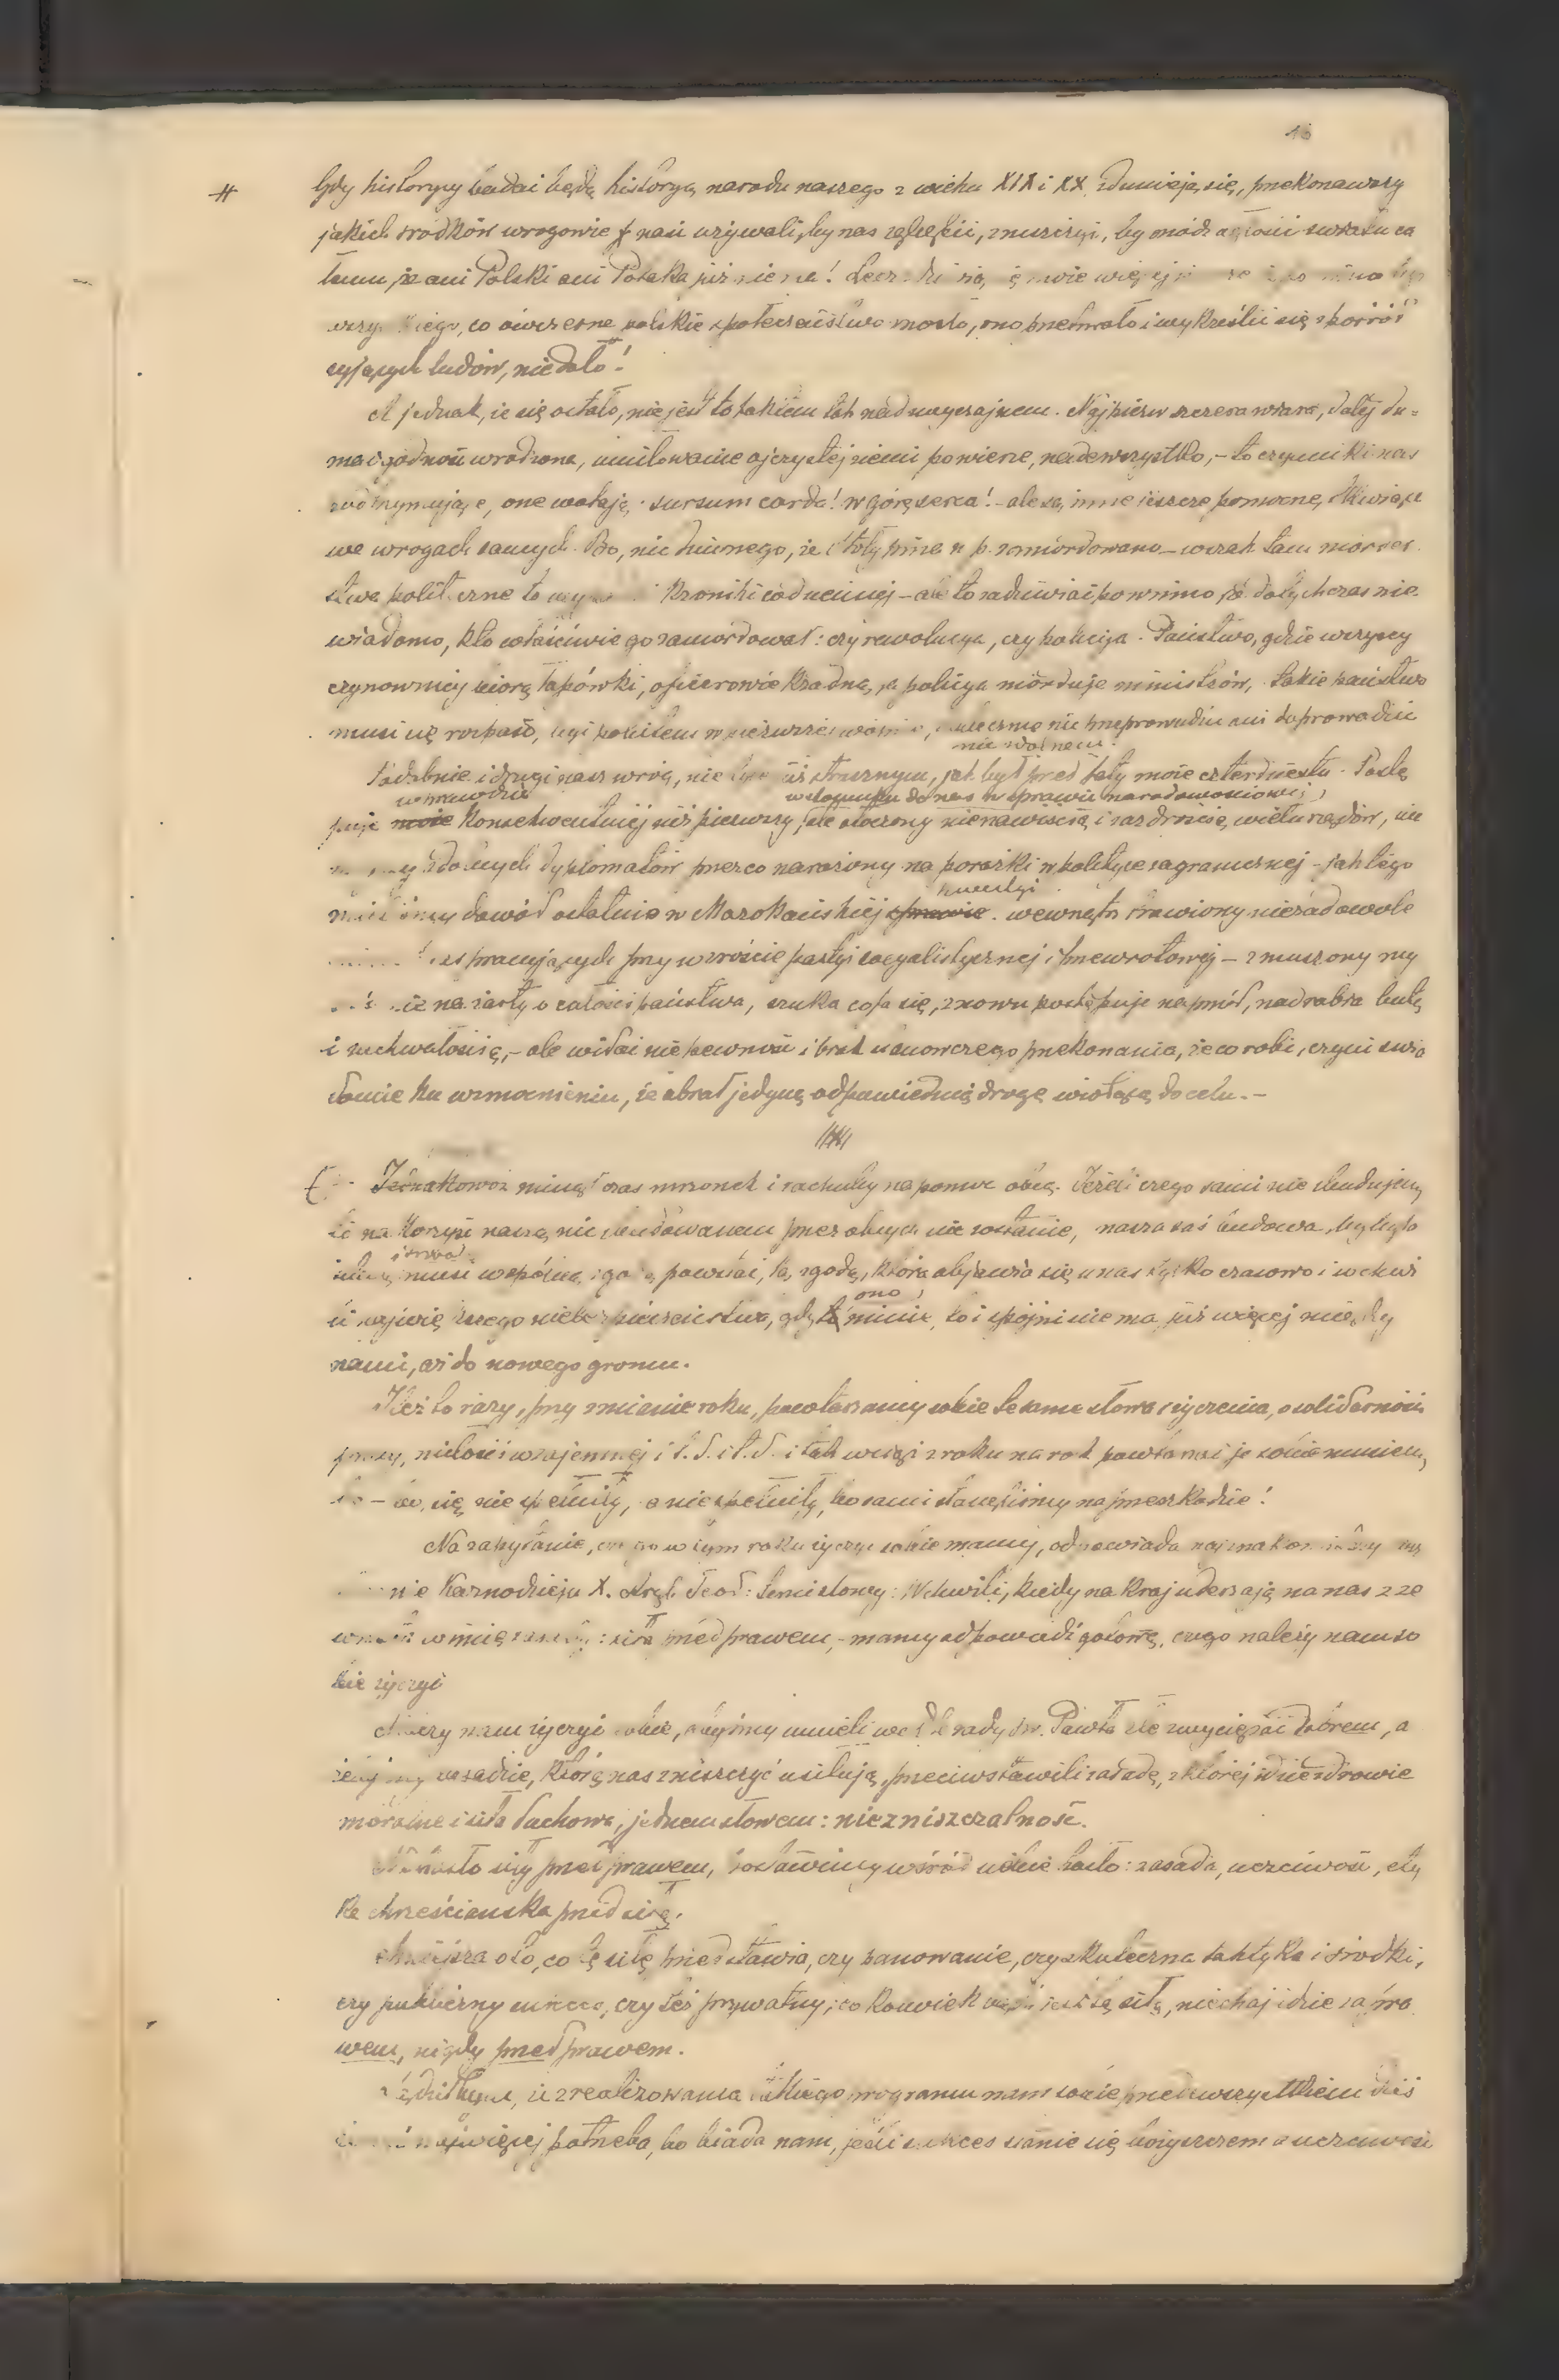 16
# Gdy historycy badać będą historyą narodu naszego z wieku XIX i XX zdumieją się, przekonawszy
jakich środków wrogowie nasi używali, by nas zgnębić, zmusić, by módz ogłosić światu ca
łemu, że ani Polski ani Polaka już nie ma! Lecz
co ówczesne polskie społeczeństwo mogło, ono przetrwało i wykreślić się z pośród
żyjących ludów, nie dało!
A jednak, że się ostało, nie jest to takiem tak nadzwyczajnem. Najpierw szczera wiara, dalej du=
ma i godność wrodzona, umiłowanie ojczystej ziemi ponad wszystko, – to czynniki nas
podtrzymujące, one wołają: sursum corda! w górę serca! – ale są inne jeszcze pomocne, tkwiące
we wrogach samych. Bo, nic dziwnego, że Stołypina n p. zamordowano – wszak tam morder
stwa polityczne to kroniki codziennej – ale to zadziwiać powinno, że dotychczas nie
wiadomo, kto właściwie go zamordował: czy rewolucya, czy policya. Państwo, gdzie wszyscy
czynownicy biorą łapówki, oficerowie kradną, a policya morduje ministrów, takie państwo
musi się rozpaść, nie przeprowadzić ani doprowadzić
nie zdoła
Podobnie i drugi nasz wróg, nie już strasznym, jak był przed laty może czterdziestu. Postę
wprawdzie
w stosunku do nas w sprawie narodowościowej,
puje może konsekwentniej niż pierwszy, ale otoczony nienawiścią i zazdrością wielu rządów, nie
zdolnych dyplomatów przezco narażony na porażki w polityce zagranicznej – jak tego
kwestyi
dowód ostatnio w Marokańskiej sprawie. wewnątrz trawiony niezadowole
pracujących przy wzroście partyi socyalistycznej i przewrotowej – zmuszony my
śleć na całości państwa, szuka cofa się, znowu postępuje naprzód, nadrabia butą
i zuchwałością, – ale widać niepewność i brak stanowczego przekonania, że co robi, czyni świa
domie ku wzmocnieniu, że obrał jedyną odpowiednią drogę wiodącą do celu. –
Jednakowoż minął czas mrzonek i rachuby na pomoc obcą. Jeżeli czego sami nie zbudujemy
to na korzyść naszą nic zbudowanem przez obcych nie zostanie, nasza zaś budowa, by była
silną, musi wspólną zgodą powstać, tą zgodą, która objawia się u nas tylko czasowo i w chwi
ono
li najwięk szego niebezpieczeństwa, gdy minie, to i spójni nie ma już więcej między
nami, aż do nowego gromu.
Ileż to razy, przy zmianie roku, powtarzamy sobie te same słowa i życzenia, o solidarności
pracy, miłości wzajemnej i t. d. i t. d. i tak wciąż z roku na rok powtarzać je sobie musiemy,
bo się nie spełniły, a nie spełniły, bo sami stanęliśmy na przeszkodzie!
Na zapytanie, czego w tym roku życzyć sobie mamy, odpowiada najznakomitszy nasz
kaznodzieja X. Arcyb. Teod: temi słowy: W chwili, kiedy na kraj uderzają na nas z ze
wnątrz w imię zasady: siła przed prawem, – mamy odpowiedź gotową, czego należy nam so
bie życzyć
Należy nam życzyć sobie, abyśmy umieli wedle rady św. Pawła złe zwyciężać dobrem, a
żebyśmy zasadzie, którą nas zniszczyć usiłują, przeciwstawili zasadę, z której idzie zdrowie
moralne i siła duchowa, jednem słowem: niezniszczalność.
Na hasło siły przed prawem, postawimy wśród siebie hasło: zasada, uczciwość, ety
ka chrześciańska przed siłą.
Mniejsza o to, co tę siłę przedstawia, czy panowanie, czy skuteczna taktyka i środki,
czy publiczny sukces, czy też prywatny; co kolwiek jest tą siłą, niechaj idzie za pra
wem, nigdy przed prawem.
że zrealizowania takiego programu nam sobie przedewszystkiem dziś
najwięcej potrzeba, bo biada nam, jeśli sukces stanie się bożyszczem a uczciwość